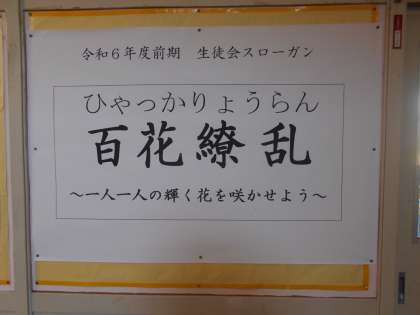 令和６年度前期　生徒会スローガン
ひゃっかりょうらん
百花繚乱
～一人一人の輝く花を咲かせよう～